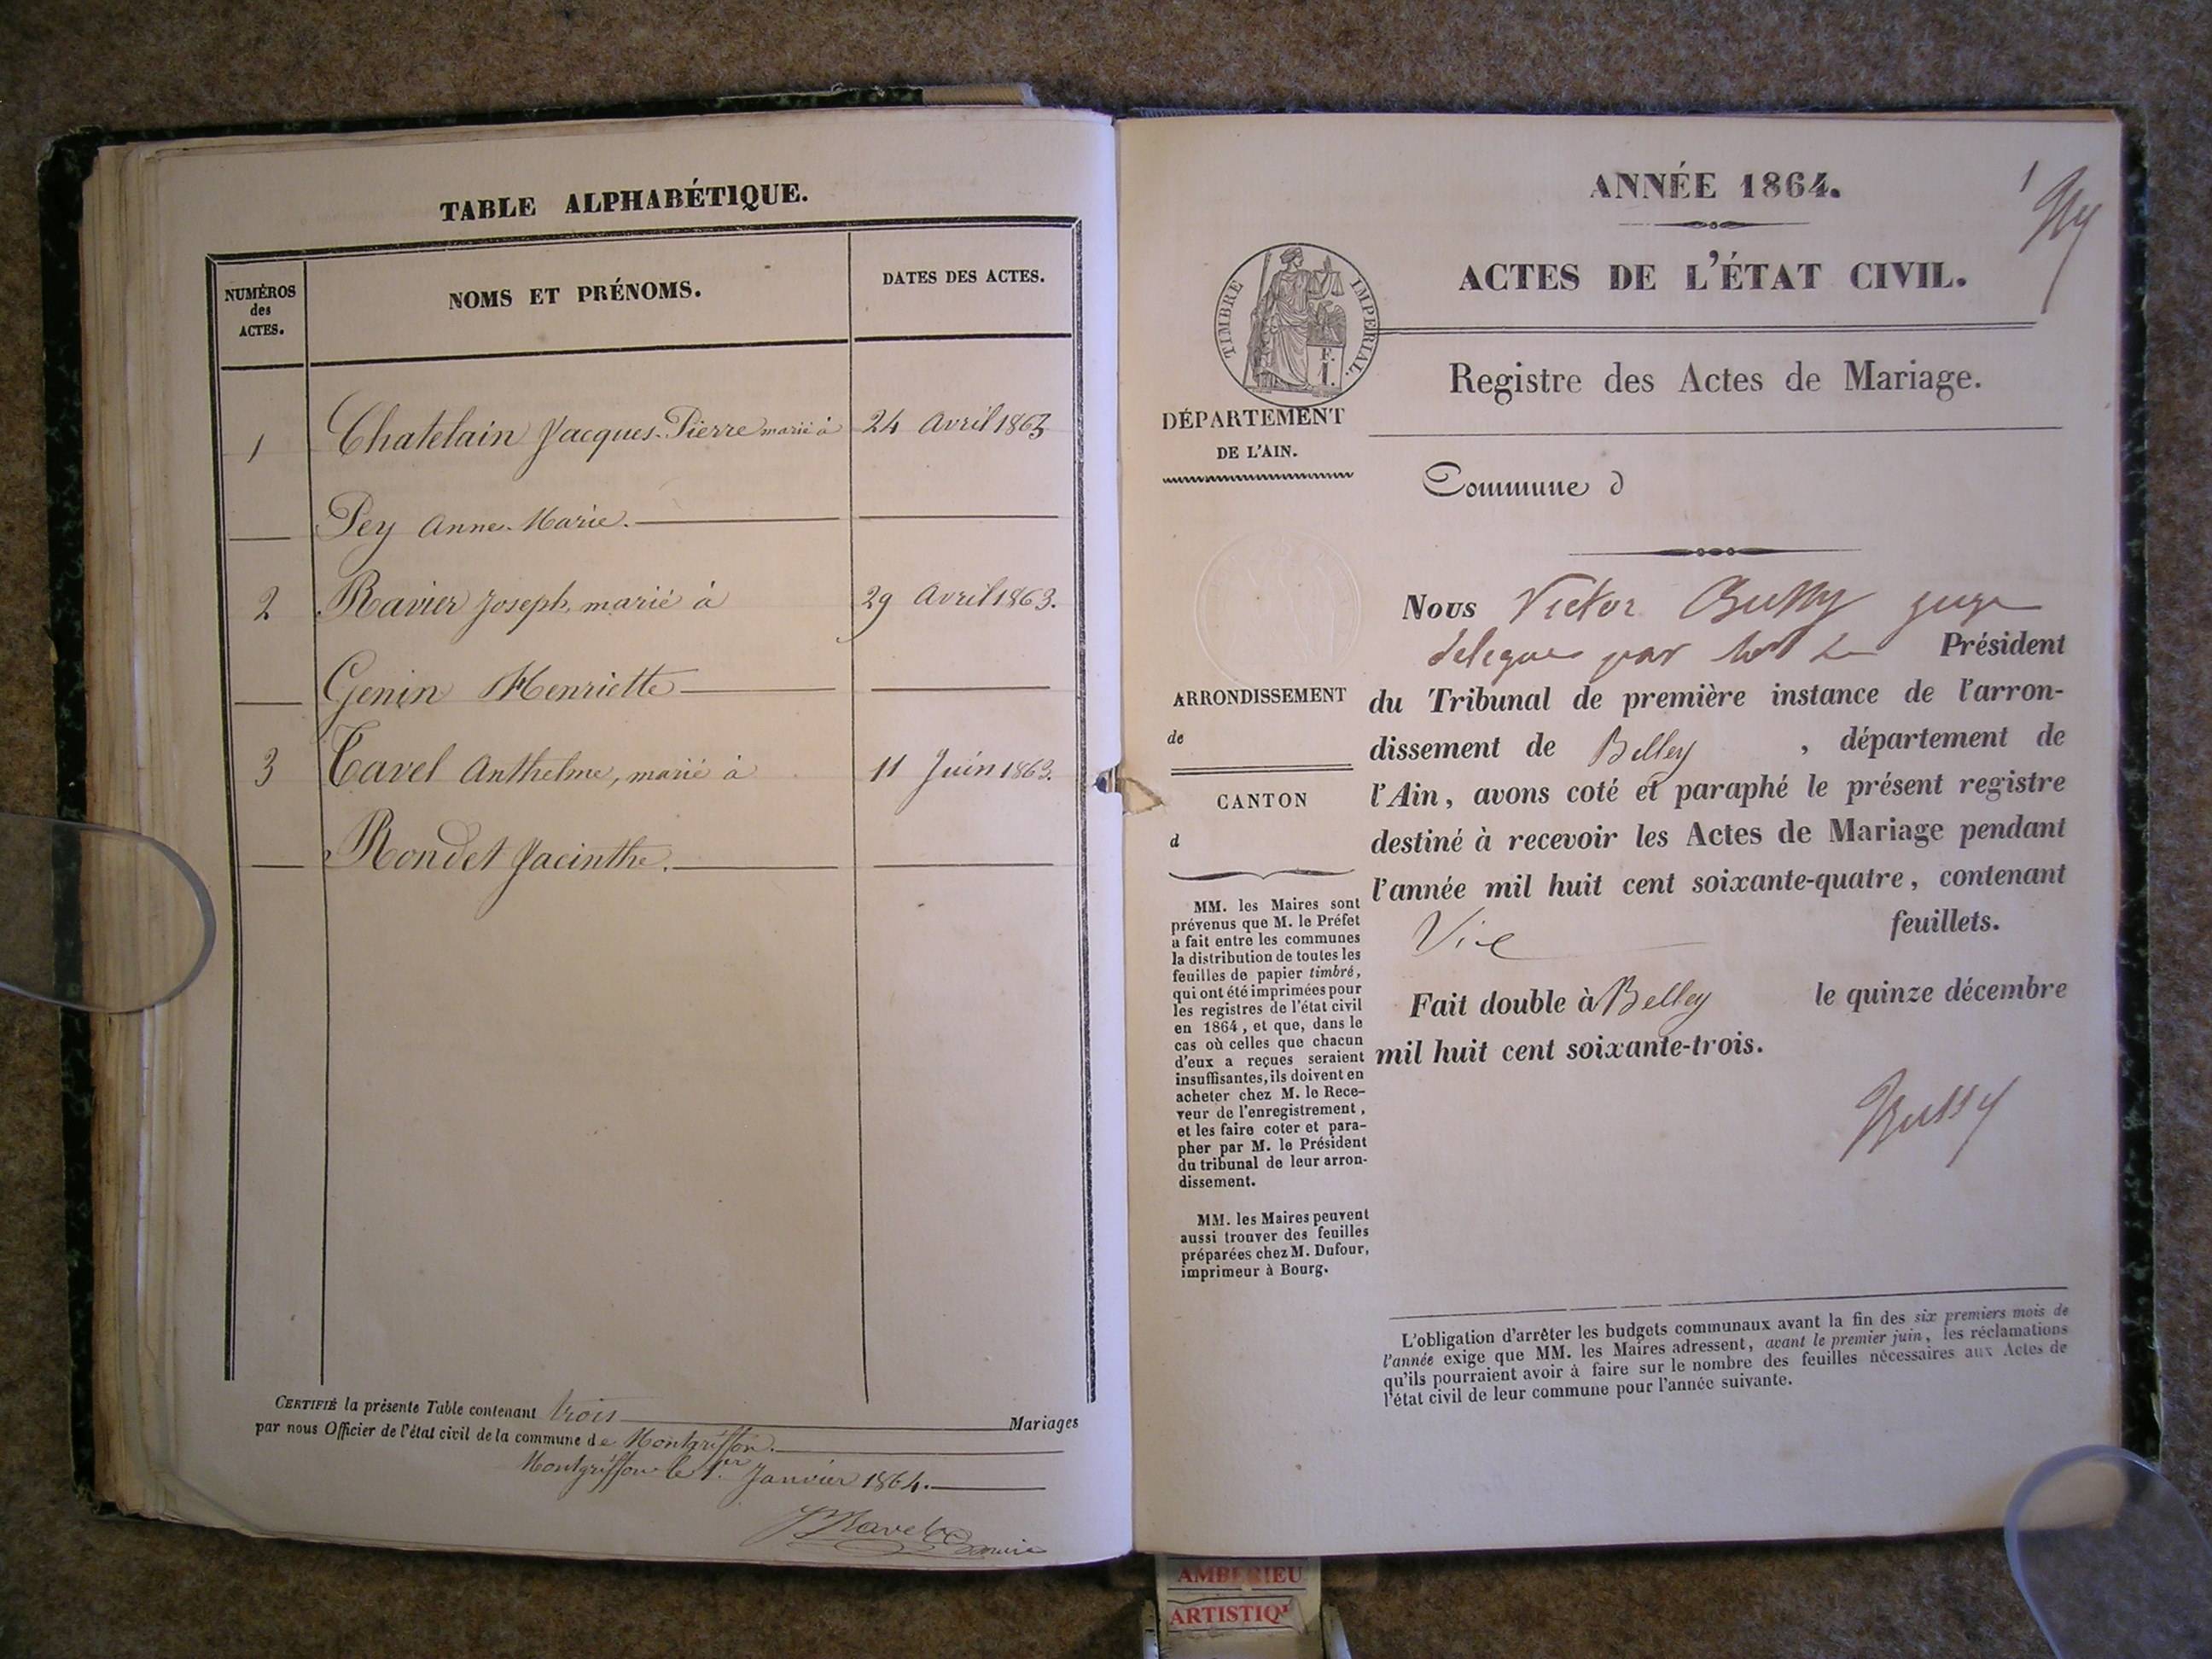 TABLE ALPHABÉTIQUE.
NUMÉROS
des
ACTES.
NOMS ET PRÉNOMS.
DATES DES ACTES.
1 Chatelain Jacques-Pierre marié à 24 Avril 1863
Pey Anne-Marie.
2 Ravier Joseph, marié à 29 Avril 1863.
Genin Henriette
3 Tavel Anthelme, marié à 11 Juin 1863.
Rondet Jacinthe.
CERTIFIÉ la présente Table contenant trois Mariages
par nous Officier de l'état civil de la commune de Montgriffon.
Montgriffon le 1er Janvier 1864.
ANNÉE 1864.
1
ACTES DE L'ÉTAT CIVIL.
TIMBRE IMPÉRIAL.
Registre des Actes de Mariage.
DÉPARTEMENT
DE L'AIN.
Commune d
Nous Victor Bussy juge
délégué par Président
du Tribunal de première instance de l'arron-
dissement de Belley , département de
l'Ain, avons coté et paraphé le présent registre
destiné à recevoir les Actes de Mariage pendant
l'année mil huit cent soixante-quatre, contenant
feuillets.
Fait double à Belley le quinze décembre
mil huit cent soixante-trois.
Bussy
ARRONDISSEMENT
de
CANTON
d
MM. les Maires sont
prévenus que M. le Préfet
a fait entre les communes
la distribution de toutes les
feuilles de papier timbré,
qui ont été imprimées pour
les registres de l'état civil
en 1864, et que, dans le
cas où celles que chacun
d'eux a reçues seraient
insuffisantes, ils doivent en
acheter chez M. le Rece-
veur de l'enregistrement,
et les faire coter et para-
pher par M. le Président
du tribunal de leur arron-
dissement.
MM. les Maires peuvent
aussi trouver des feuilles
préparées chez M. Dufour,
imprimeur à Bourg.
L'obligation d'arrêter les budgets communaux avant la fin des six premiers mois de
l'année exige que MM. les Maires adressent, avant le premier juin, les réclamations
qu'ils pourraient avoir à faire sur le nombre des feuilles nécessaires aux Actes de
l'état civil de leur commune pour l'année suivante.
AMBERIEU
ARTISTIQ